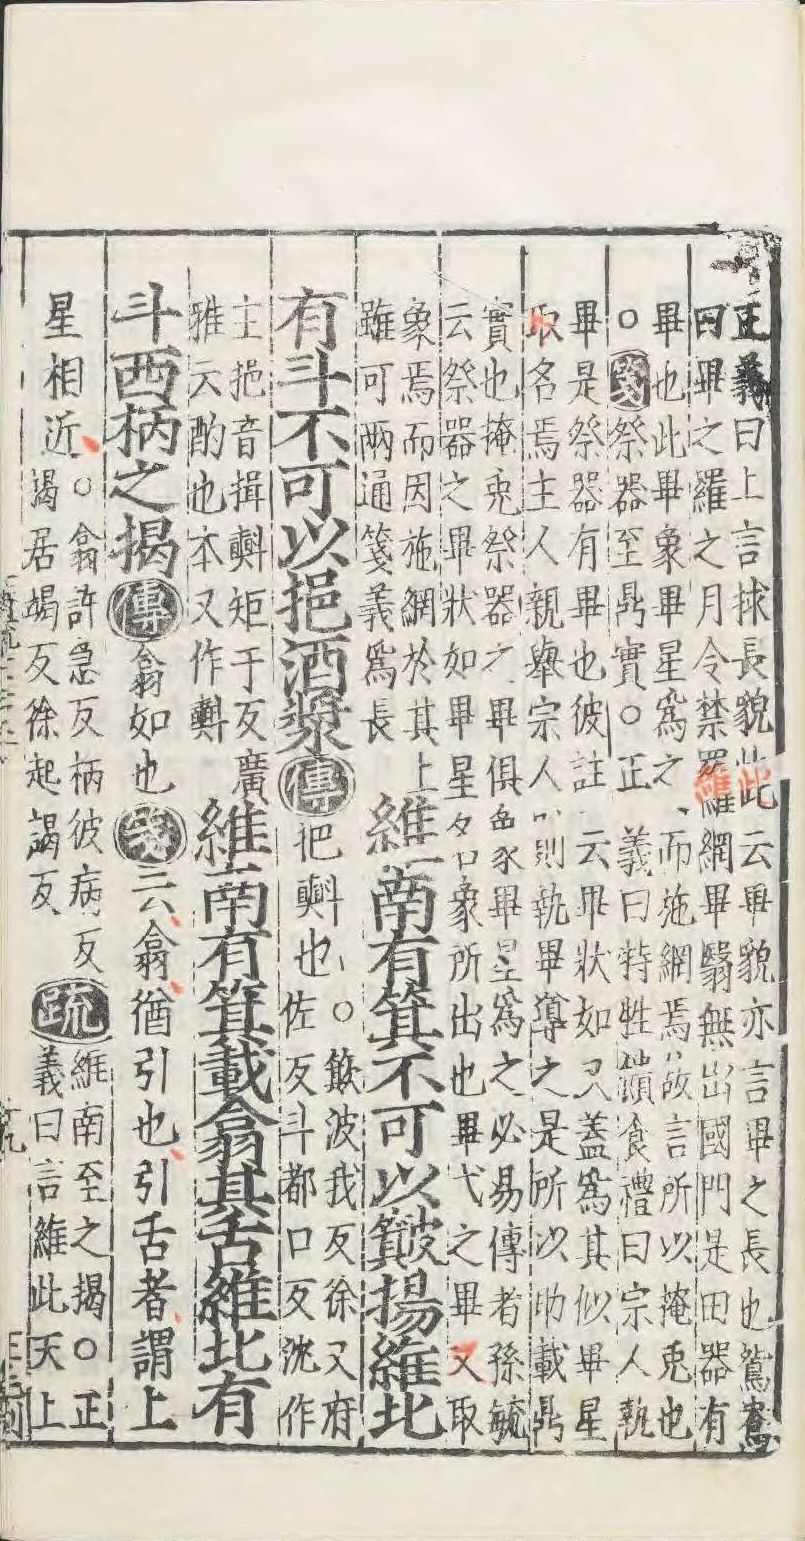 正義曰上言捄長貌此云畢貌亦言畢之長也鴛鴦
曰畢之羅之月令禁羅網畢翳無出國門是田器有
畢也此畢象畢星為之而施網焉故言所以掩兎也
○箋祭器至鼎實○正義曰特牲饋食禮曰宗人執
畢是祭器有畢也彼註云畢狀如叉蓋為其似畢星
取名焉主人親舉宗人則執畢導之是所以助載鼎
實也掩兎祭器之畢俱象畢星為之必易傳者孫毓
云祭器之畢狀如畢星名象所出也畢弋之畢又取
象焉而因施網於其上
雖可兩通箋義為長
維南有箕不可以簸揚維北
有斗不可以挹酒漿傳
挹㪺也○簸波我反徐又府
佐反斗都口反沈作
主挹音揖㪺矩于反廣
雅云酌也本又作㪺
維南有箕載翕其舌維北有
斗西柄之揭傳翕如也箋云翕猶引也引舌者謂上
星相近
○翕許急反柄彼病反
揭居竭反徐起謁反
疏
維南至之揭○正
義曰言維此天上